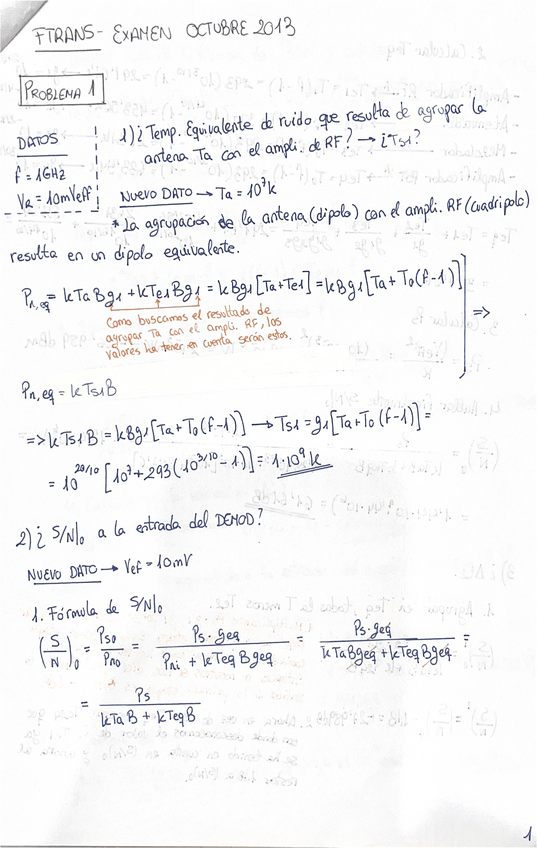 FTRANS- EXAMEN OCTUBRE 2013
PROBLEMA 1
DATOS
f = 1GHz
Va = 10mVeff
1) ¿Temp. Equivalente de ruido que resulta de agrupar la
antena Ta con el ampli. de RF? → ¿Ts1?
NUEVO DATO → Ta = 10⁷k
* La agrupación de la antena (dipolo) con el ampli. RF (cuadripolo)
resulta en un dipolo equivalente.
Pn,eq = kTaBg1 + kTe1Bg1 = kBg1[Ta+Te1] = kBg1[Ta+To(f-1)]
Como buscamos el resultado de
agrupar Ta con el ampli. RF, los
valores ha tener en cuenta serán estos.
=>
Pn,eq = kTs1B
=> kTs1B = kBg1[Ta+To(f-1)] → Ts1 = g1[Ta+To(f-1)] =
= 10^20/10 [10⁷+293(10^3/10 -1)] = 1·10⁹k
2) ¿ S/N|o a la entrada del DEMOD?
NUEVO DATO → Vef = 10mV
1. Fórmula de S/N|o
(S/N)o = Pso/Pno = Ps·geq/(Pni + kTeqBgeq) = Ps·geq/(kTaBgeq + kTeqBgeq) =
= Ps/(kTaB + kTeqB)
1